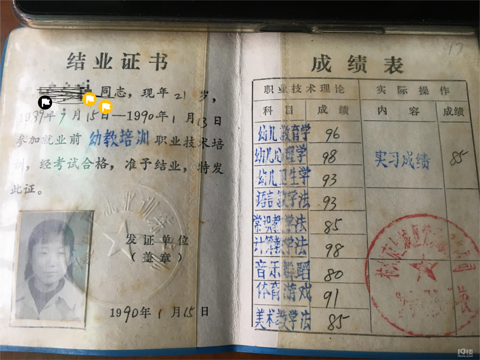 结业证书
同志，现年21岁，
月15日—1990年1月13日
参加就业前幼教培训职业技术培
训，经考试合格，准予结业，特发
此证。
发证单位
（盖章）
1990年1月15日
成绩表
职业技术理论 实际操作
科目 成绩 内容 成绩
幼儿教育学 96
幼儿心理学 98
幼儿卫生学 93
语言教学法 93
实习成绩 85
常识教学法 85
计算教学法 98
音乐舞蹈 80
体育游戏 91
美术教学法 85